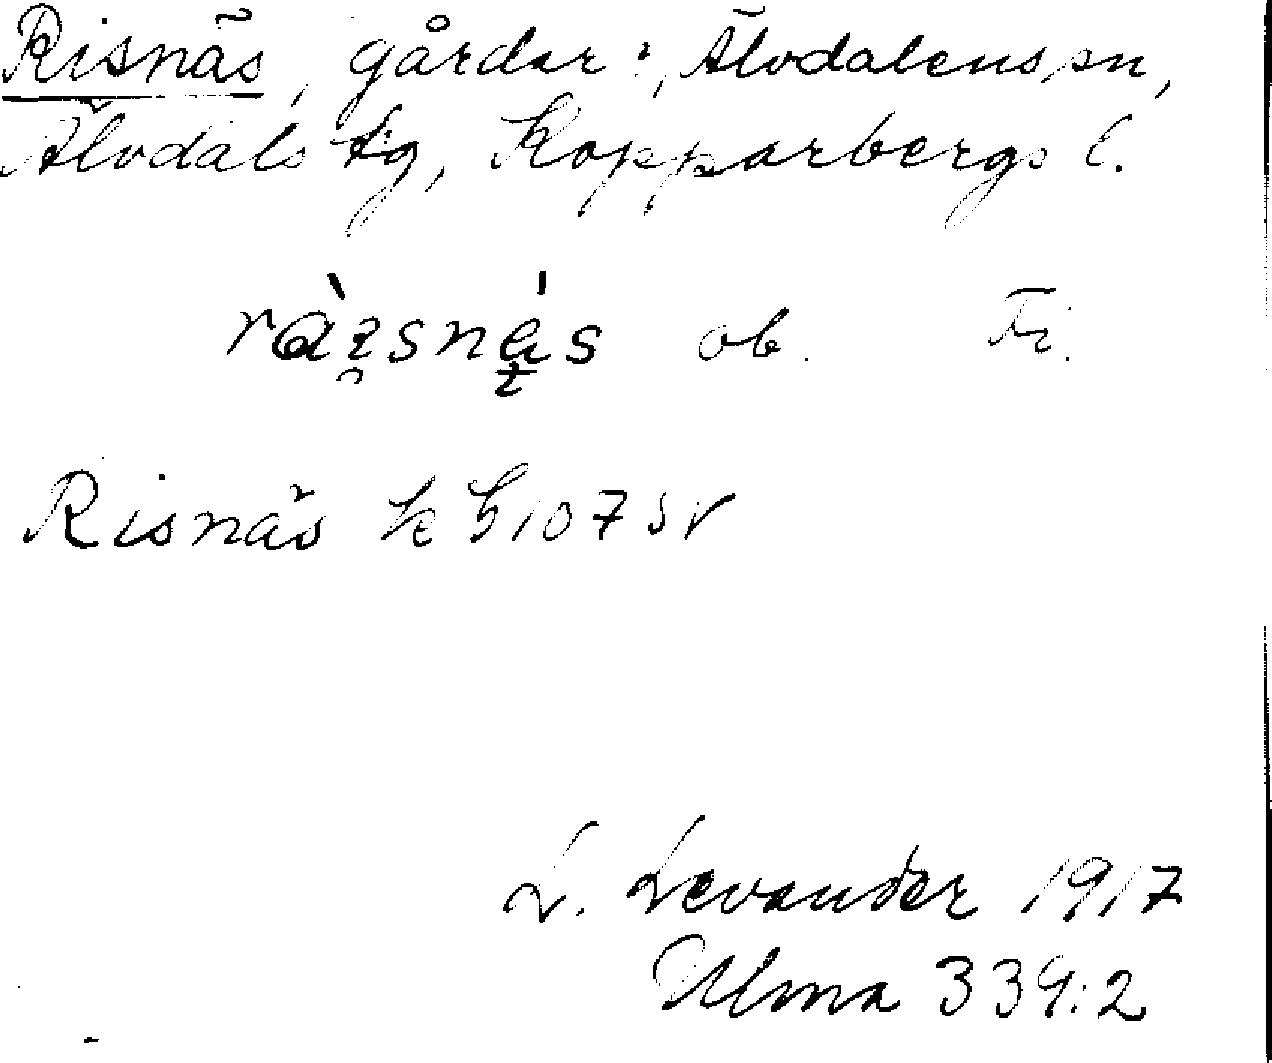 Risnäs, gårdar i Älvdalens sn,
Älvdals tg, Kopparbergs l.
ob. Fi.
Risnäs k G 107 SV
L. Levander 1917
Ulma 339:2